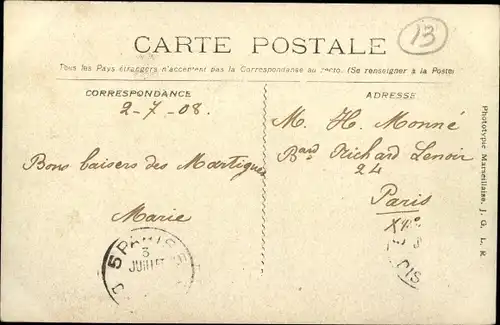 CARTE POSTALE
13
Tous les Pays étrangers n'acceptent pas la Correspondanse au recto. (Se renseigner à la Poste)
CORRESPONDANCE
ADRESSE
2-7-08.
Bons baisers des Martigues
Marie
M. H. Monné
Bard Richard Lenoir
24
Paris
XIe
5 PARIS 5
3
JUILLET
Phototypie Marseillaise, J. G. L. R.